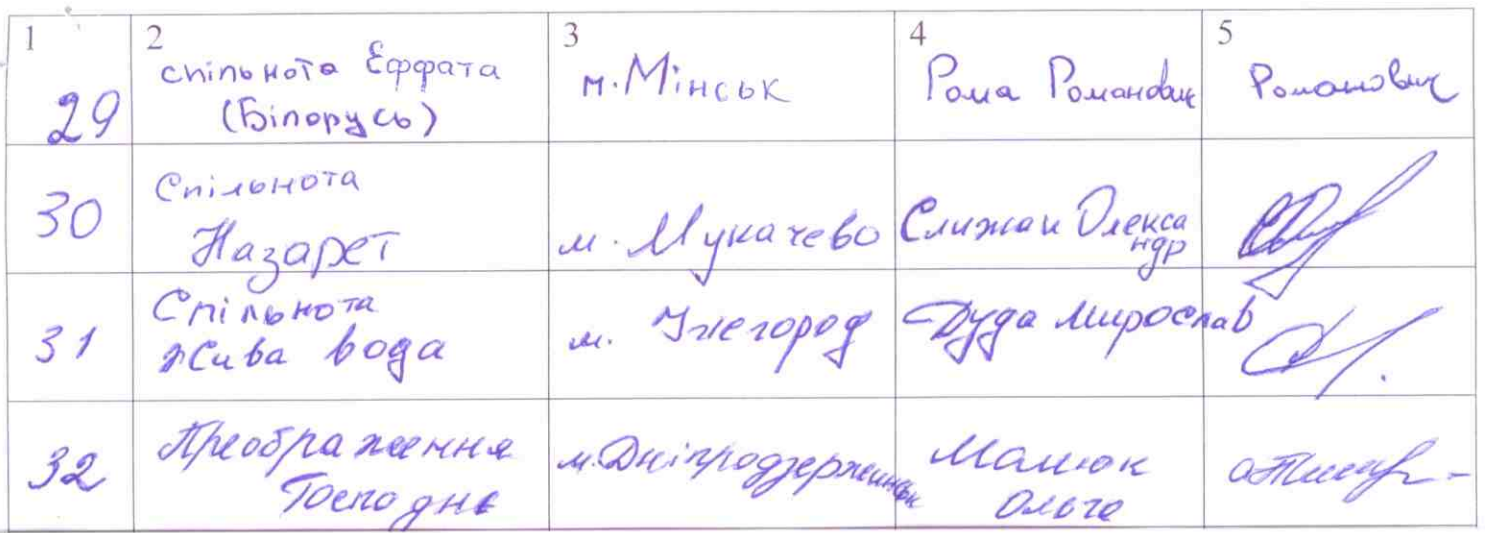 1 2 3 4 5
29 спільнота Еффата (Білорусь) м. Мінськ Рома Романович Романович
30 Спільнота Назарет м. Мукачево Слижан Олександр
31 Спільнота Жива вода м. Ужгород Дуда Мирослав
32 Преображення Господнє м. Дніпродзержинськ Ольга